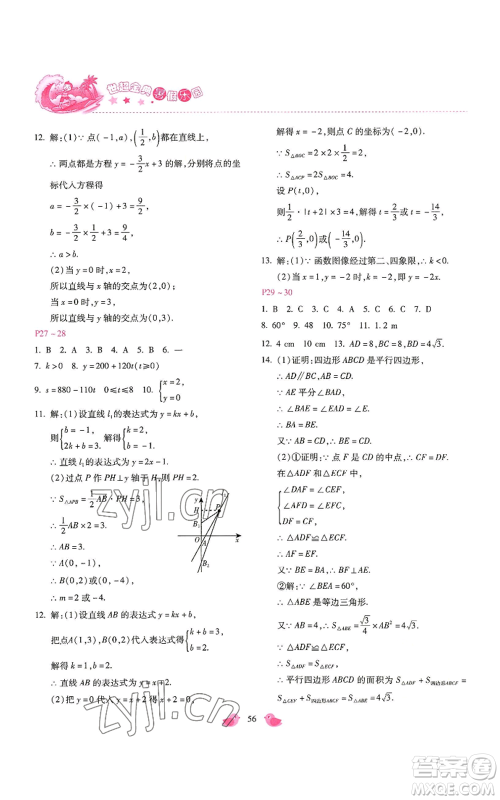 世超金典暑假乐园
12. 解:(1)∵点(-1,a),(1/2,b)都在直线上,
∴两点都是方程 y=-3/2x+3 的解,分别将点的坐
标代入方程得
a=-3/2×(-1)+3=9/2,
b=-3/2×1/2+3=9/4,
∴a>b.
(2)当 y=0时,x=2,
所以直线与 x 轴的交点为(2,0);
当 x=0时,y=3,
所以直线与 y 轴的交点为(0,3).
P27-28
1. B 2. A 3. A 4. D 5. B 6. 一
7. k>0 8. y=200+120t(t≥0)
9. s=880-110t 0≤t≤8 10. {x=2, y=3
11. 解:(1)设直线 l₁的表达式为 y=kx+b,
则{b=-1, 2k+b=3. 解得{k=2, b=-1.
∴直线 l₁的表达式为 y=2x-1.
(2)过点 P 作 PH⊥y 轴于 H,则 PH=2,
∵S△APB=1/2AB·PH=3,
∴1/2AB×2=3,
∴AB=3.
∵A(0,-1),
∴B(0,2)或(0,-4),
∴m=2或-4.
12. 解:(1)设直线 AB 的表达式为 y=kx+b,
把点A(1,3),B(0,2)代入表达式得{k+b=3, b=2.
解得 k=1,b=2.
∴直线 AB 的表达式为 y=x+2.
(2)把 y=0代入 y=x+2得 x+2=0,
解得 x=-2,则点 C 的坐标为(-2,0).
∵S△BOC=2×2×1/2=2,
∴S△ACP=2S△BOC=4.
设 P(t,0),
则1/2·|t+2|×3=4,解得 t=2/3或 t=-14/3,
∴P(2/3,0)或(-14/3,0).
13. 解:(1)∵函数图像经过第二、四象限,∴k<0.
(2)当 x=-2时,y>0.
P29~30
1. B 2. C 3. C 4. A 5. C 6. C 7. D
8. 60° 9. 48 10. 75° 11. 1.2 m
12. 4 cm 10 cm 13. AD=8,BC=8,BD=4√3
14. (1)证明:四边形 ABCD 是平行四边形,
∴AD∥BC,AD=BC.
∵AE 平分∠BAD,
∴∠BAE=∠DAE,
∴∠BAE=∠E,
∴AB=BE,
∴BE=CD.
(2)①证明:∵点 F 是 CD 的中点,∴DF=CF.
在△ADF 和△ECF 中,
{∠D=∠ECF, ∠DAF=∠E, DF=CF.
∴△ADF≌△ECF.
∴△ADF≌△ECF.
②解:∵∠BAE=60°,
∴△ABE 是等边三角形.
∴S△ABE=√3/4×AB²=4√3.
∵△ADF≌△ECF,
∴平行四边形 ABCD 的面积为 S△ADF+S四边形ABCF=
S△CEF+S四边形ABCF=S△ABE=4√3.
56
zyjl.cn
zyjl.cn
作业精灵